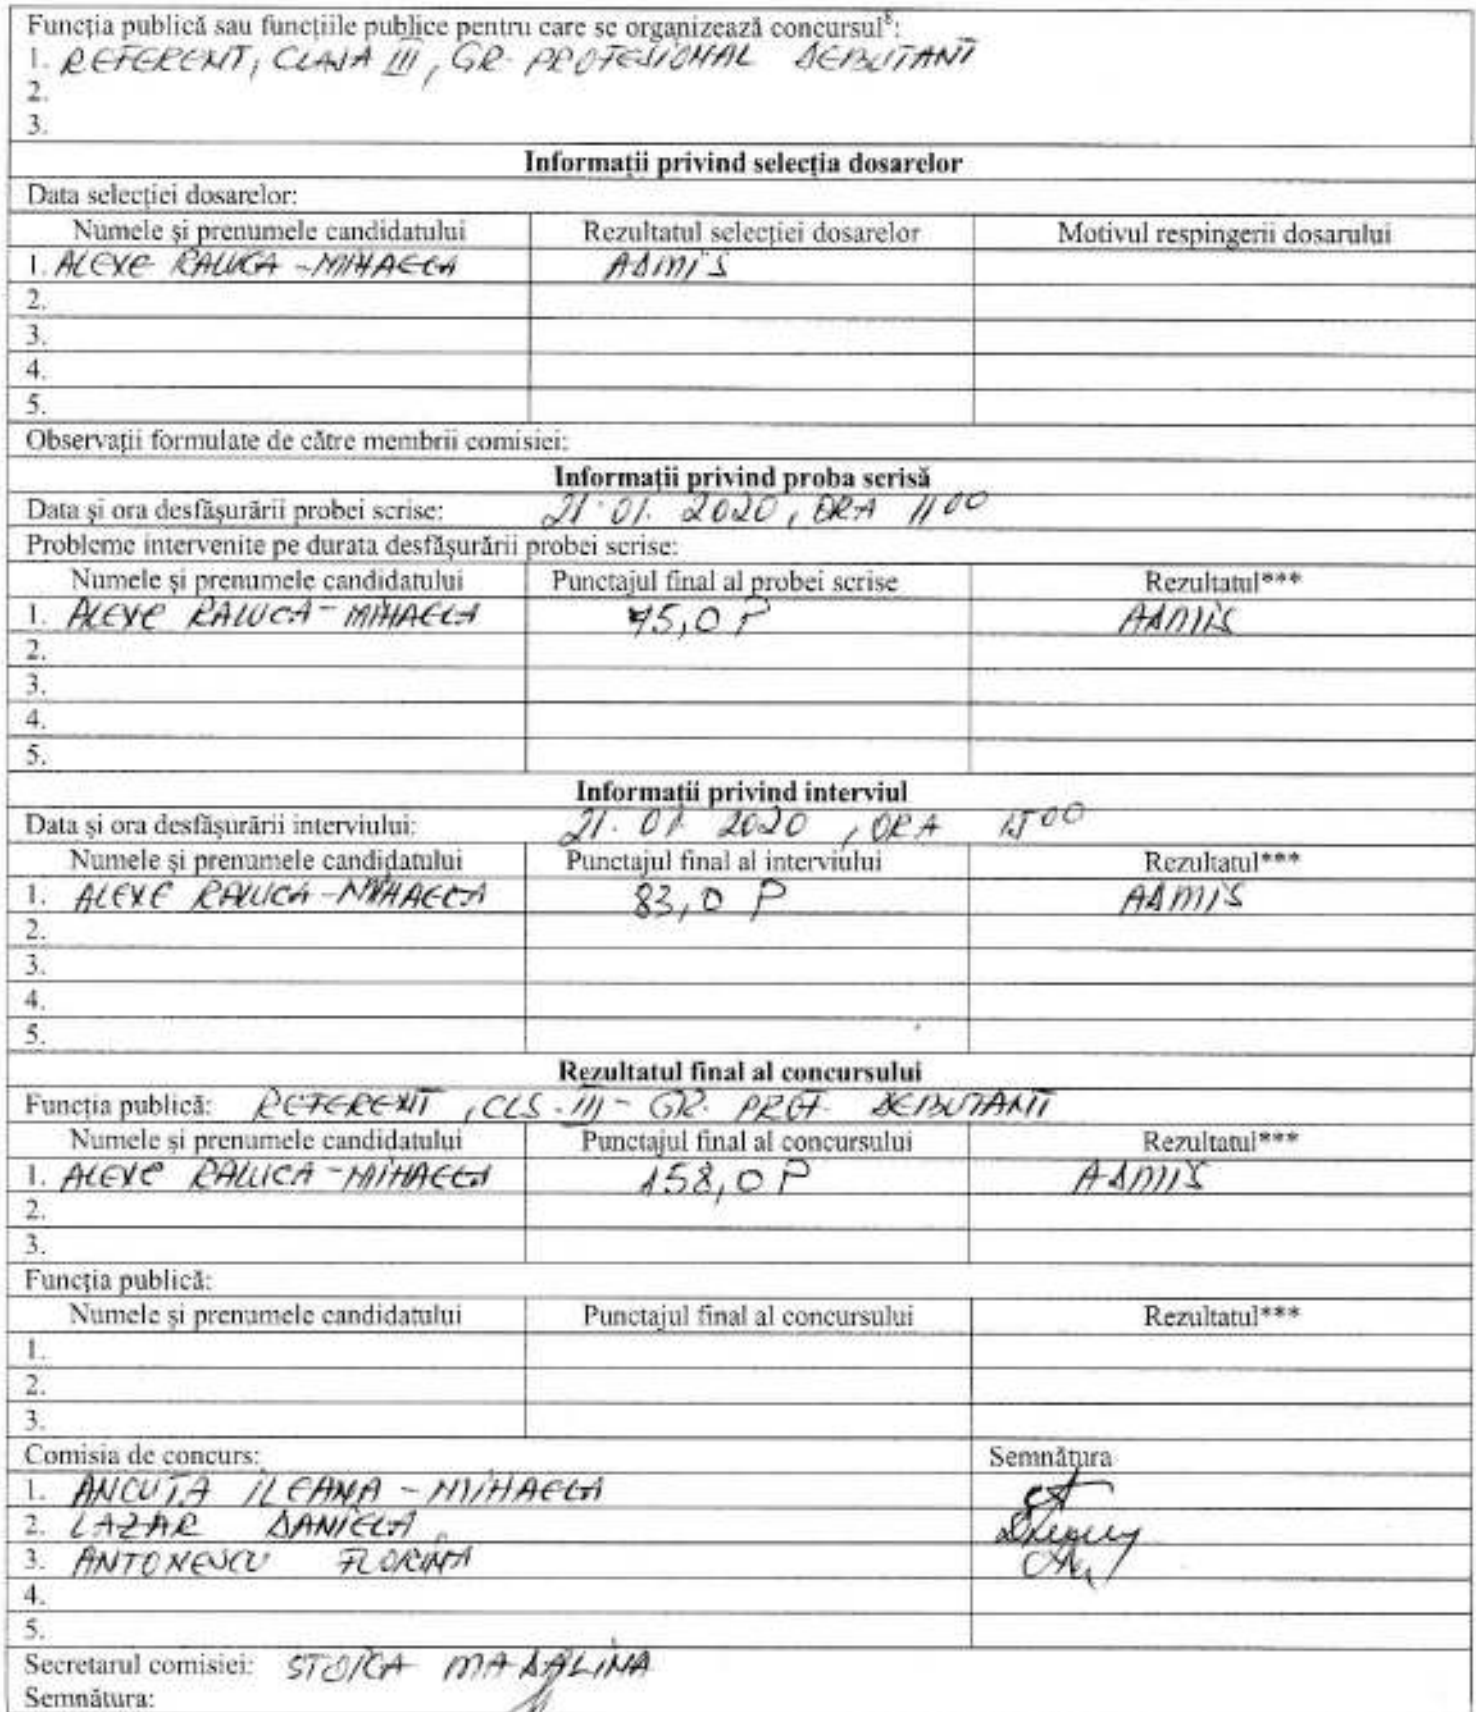 Funcția publică sau funcțiile publice pentru care se organizează concursul⁸:
1. REFERENT, CLASA III, GR. PROFESIONAL DEBUTANT
2.
3.
Informații privind selecția dosarelor
Data selecției dosarelor:
Numele și prenumele candidatului Rezultatul selecției dosarelor Motivul respingerii dosarului
1. ALEXE RALUCA-MIHAELA ADMIS
2.
3.
4.
5.
Observații formulate de către membrii comisiei:
Informații privind proba scrisă
Data și ora desfășurării probei scrise: 21.01.2020, ORA 11 00
Probleme intervenite pe durata desfășurării probei scrise:
Numele și prenumele candidatului Punctajul final al probei scrise Rezultatul***
1. ALEXE RALUCA-MIHAELA 75,0 P ADMIS
2.
3.
4.
5.
Informații privind interviul
Data și ora desfășurării interviului: 21.01.2020, ORA 15 00
Numele și prenumele candidatului Punctajul final al interviului Rezultatul***
1. ALEXE RALUCA-MIHAELA 83,0 P ADMIS
2.
3.
4.
5.
Rezultatul final al concursului
Funcția publică: REFERENT, CLS. III - GR. PROF. DEBUTANT
Numele și prenumele candidatului Punctajul final al concursului Rezultatul***
1. ALEXE RALUCA-MIHAELA 158,0 P ADMIS
2.
3.
Funcția publică:
Numele și prenumele candidatului Punctajul final al concursului Rezultatul***
1.
2.
3.
Comisia de concurs: Semnătura
1. ANCUȚA ILEANA-MIHAELA
2. LAZAR DANIELA
3. ANTONESCU FLORINA
4.
5.
Secretarul comisiei: STOICA MADALINA
Semnătura: